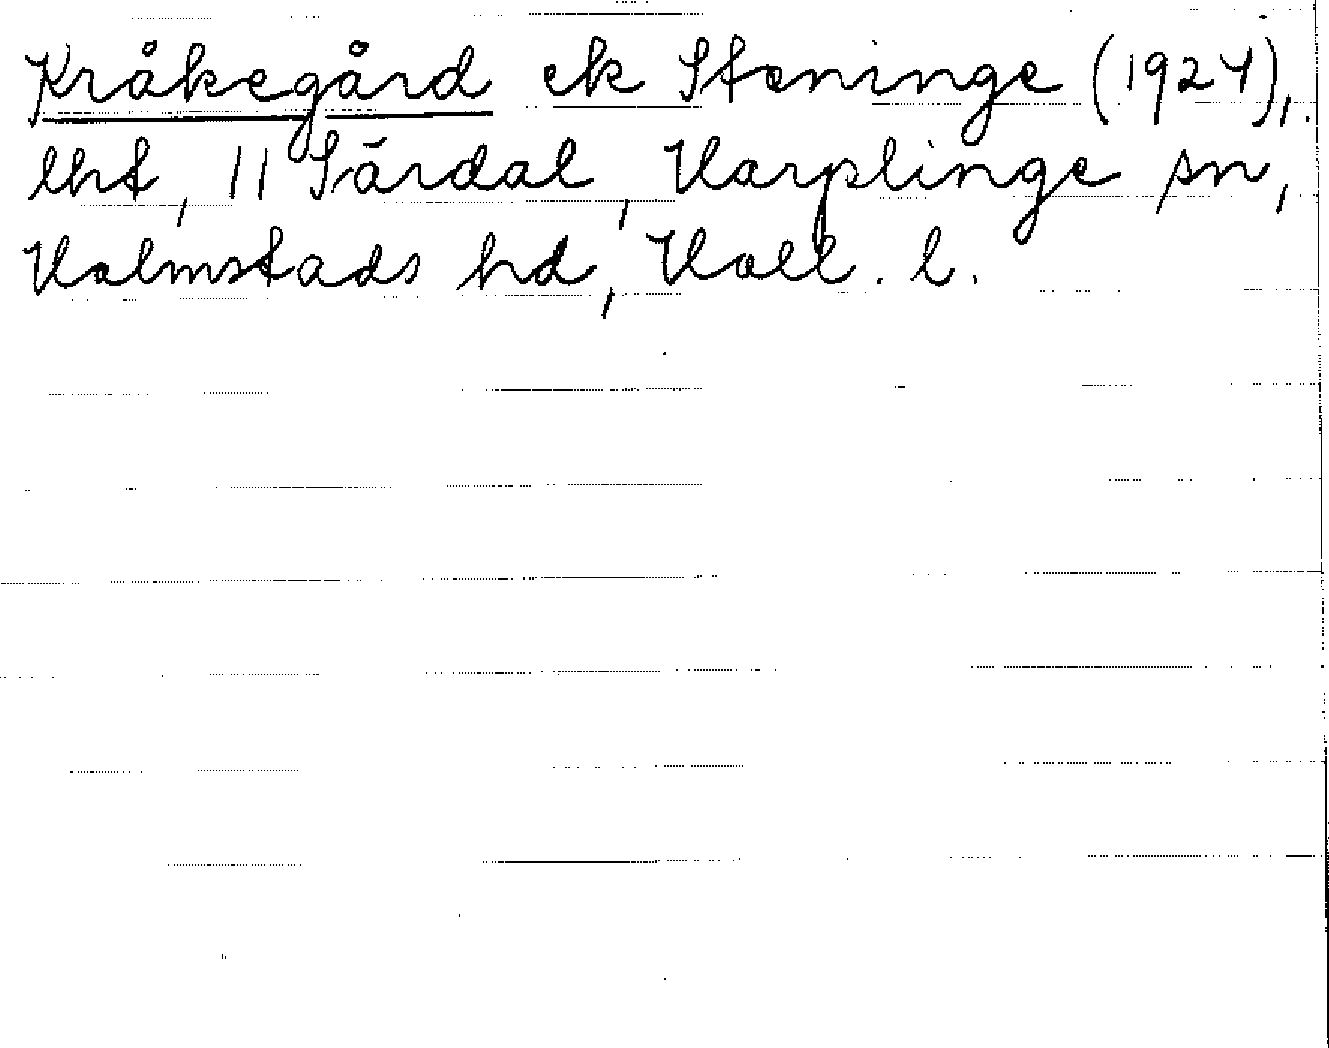 Kråkegård ek Steninge (1927),
lht, 11 Särdal, Harplinge sn,
Halmstads hd, Hall. l.